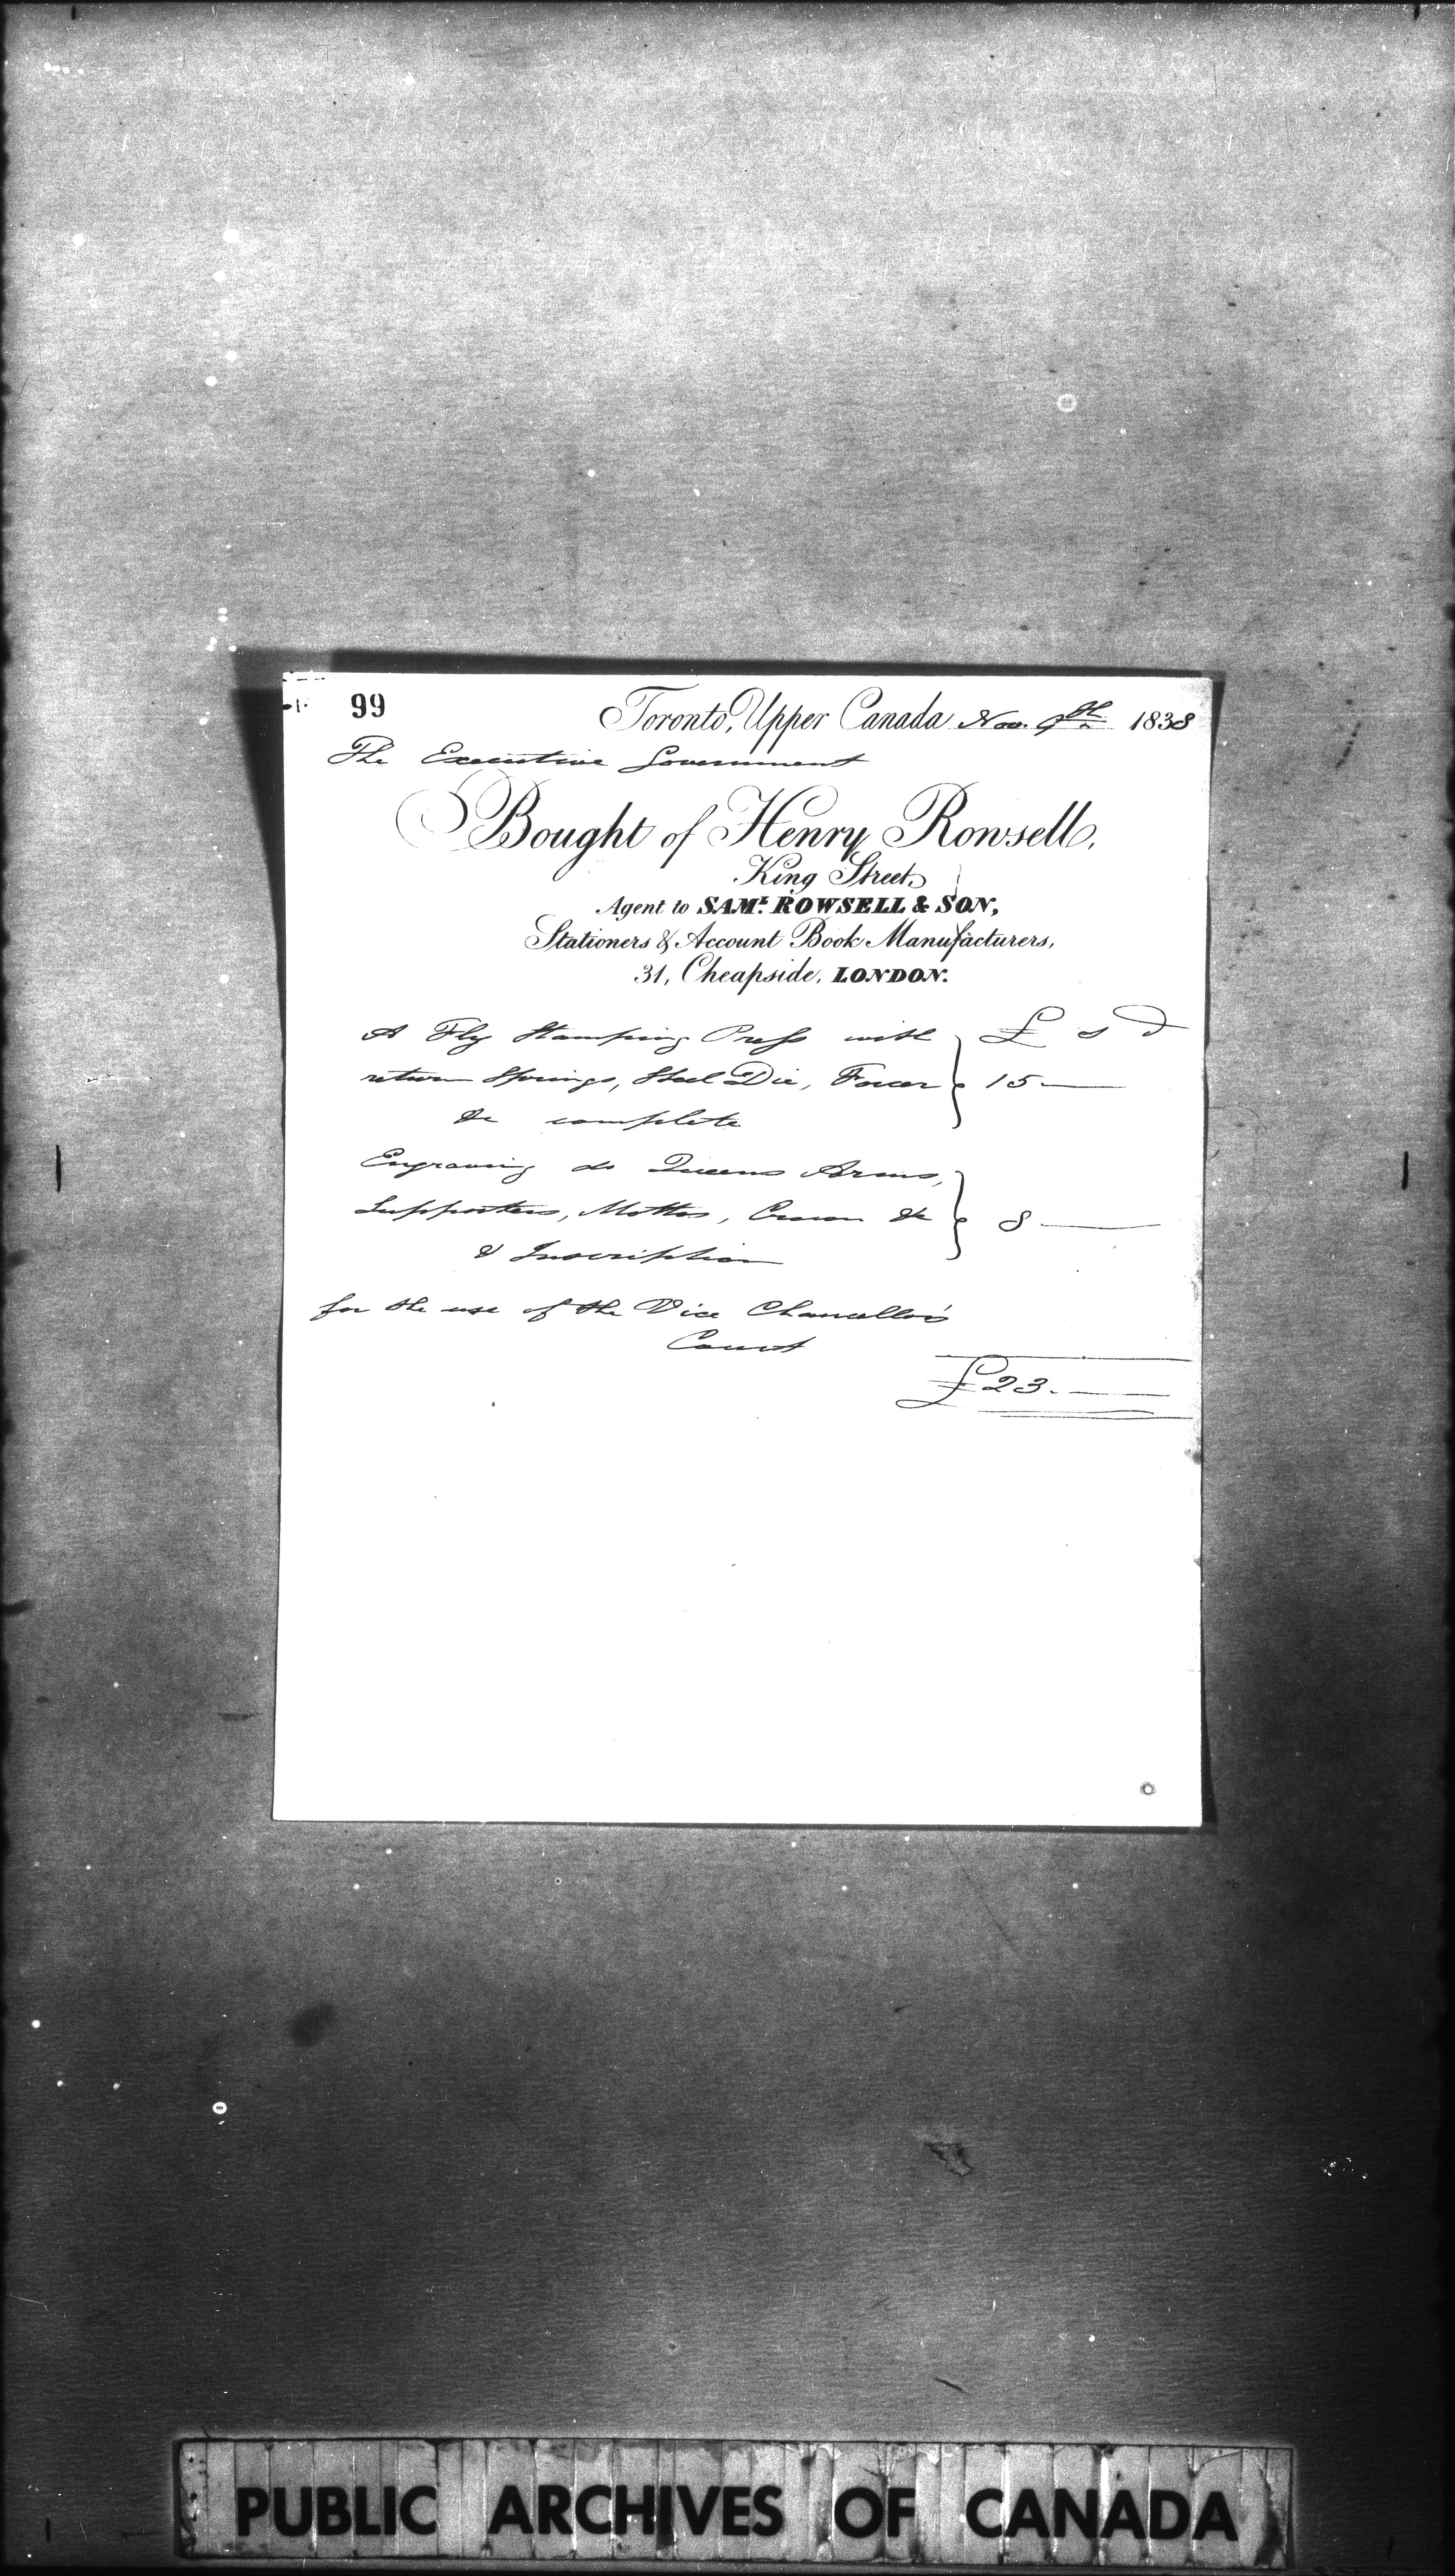 99
Toronto, Upper Canada Nov. 9th 1838
The Executive Government
Bought of Henry Rowsell,
King Street,
Agent to SAML. ROWSELL & SON,
Stationers & Account Book Manufacturers,
31, Cheapside, LONDON.
£ s d
A Fly Stamping Press with
return Springs, Steel Die, Forcer 15 —
&c complete
Engraving do Queens Arms,
Supporters, Mottos, Crown &c 8 —
& Inscription
for the use of the Vice Chancellor's
Court
£23. —
PUBLIC ARCHIVES OF CANADA